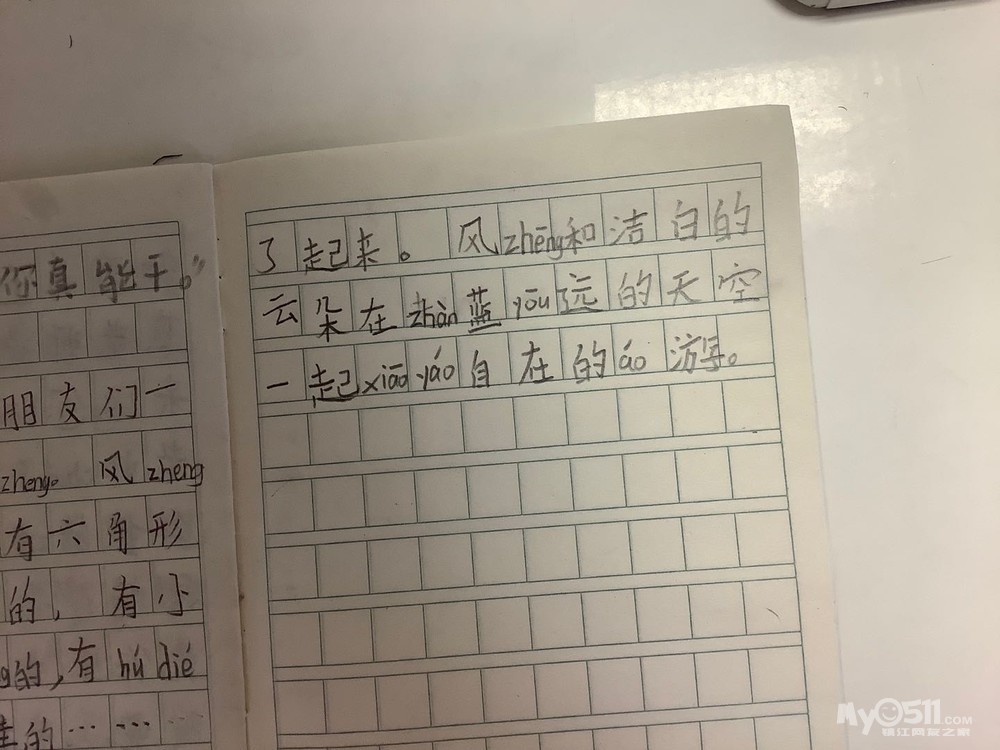 你真能干。”
朋友们一
zheng。风zheng
有六角形
的，有小
g的，有hú dié
的……
了起来。风zhēng和洁白的
云朵在zhàn蓝yōu远的天空
一起xiāo yáo自在的áo游。
My0511.COM
镇江网友之家